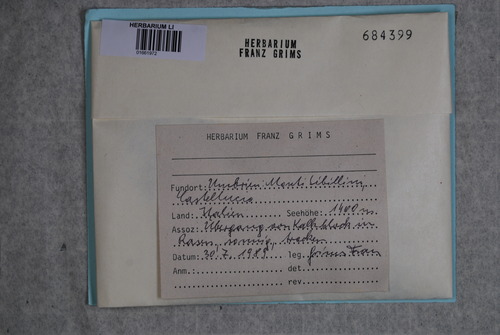 HERBARIUM LI
HERBARIUM
FRANZ GRIMS
684399
HERBARIUM FRANZ GRIMS
Fundort: Umbrien Monti Sibillini,
Castelluccio
Land: Italien Seehöhe: 1400 m
Assoz: Übergang von Kalkblock in
Rasen, sonnig, trocken
Datum: 30.7.1989 leg. Grims Franz
Anm.: det.
rev.